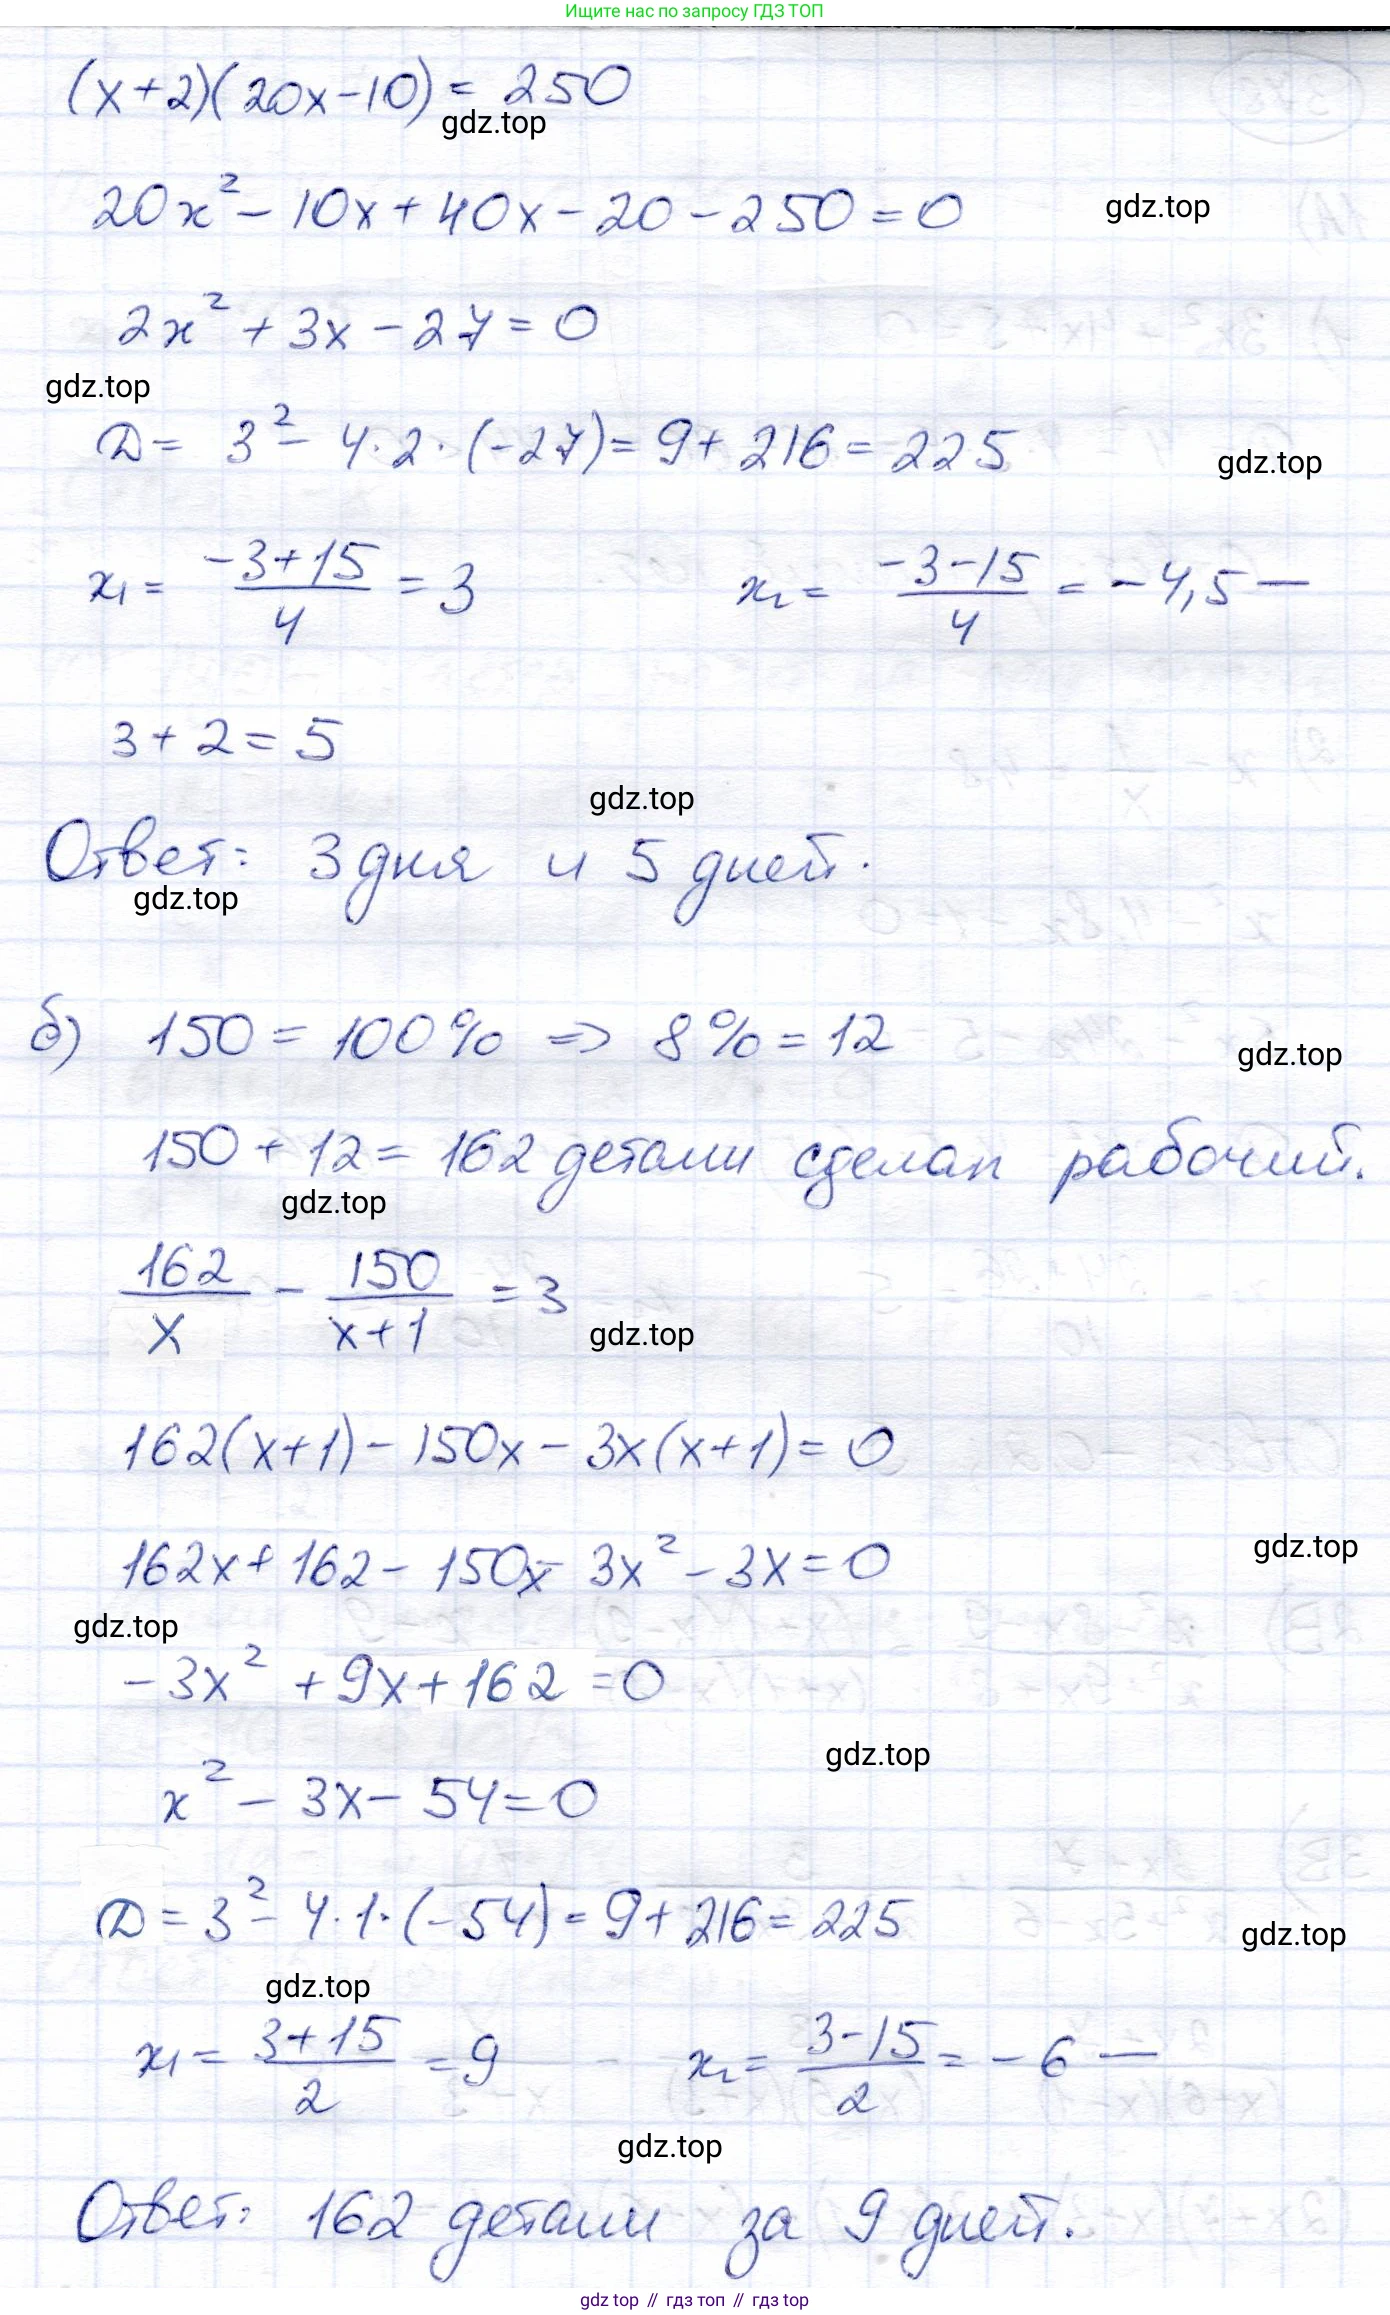 Ищите нас по запросу ГДЗ ТОП
(x+2)(20x-10) = 250
gdz.top
20x² - 10x + 40x - 20 - 250 = 0
gdz.top
2x² + 3x - 27 = 0
gdz.top
D = 3² - 4·2·(-27) = 9 + 216 = 225
gdz.top
x₁ = (-3+15)/4 = 3 x₂ = (-3-15)/4 = -4,5 —
3 + 2 = 5
gdz.top
Ответ: 3 дня и 5 дней.
gdz.top
б) 150 = 100% => 8% = 12
gdz.top
150 + 12 = 162 детали сделал рабочий.
gdz.top
162/x - 150/(x+1) = 3
gdz.top
162(x+1) - 150x - 3x(x+1) = 0
162x + 162 - 150x - 3x² - 3x = 0
gdz.top
gdz.top
-3x² + 9x + 162 = 0
gdz.top
x² - 3x - 54 = 0
D = 3² - 4·1·(-54) = 9 + 216 = 225
gdz.top
gdz.top
x₁ = (3+15)/2 = 9 x₂ = (3-15)/2 = -6 —
gdz.top
Ответ: 162 детали за 9 дней.
gdz top // гдз топ // гдз top